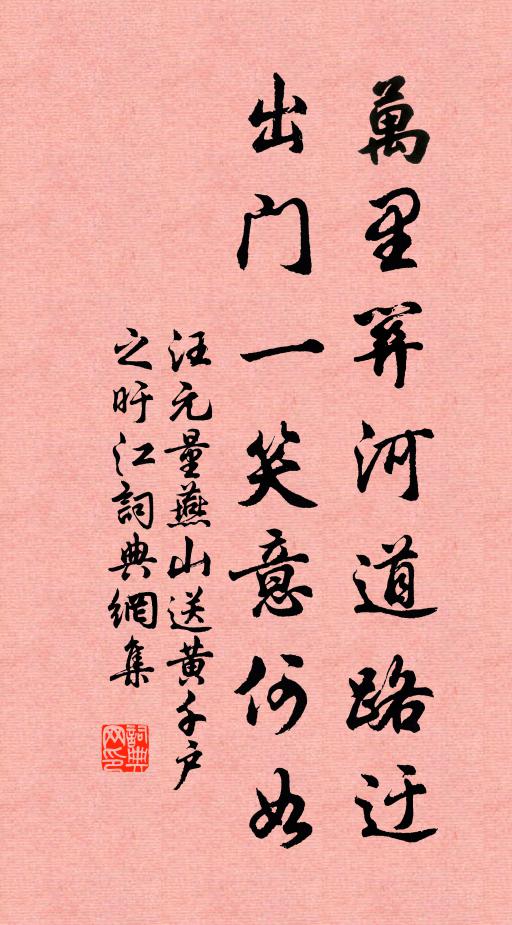 萬里關河道路迂
出門一笑意何如
汪元量燕山送黃千户
之盱江詞典網集
詞典
网印